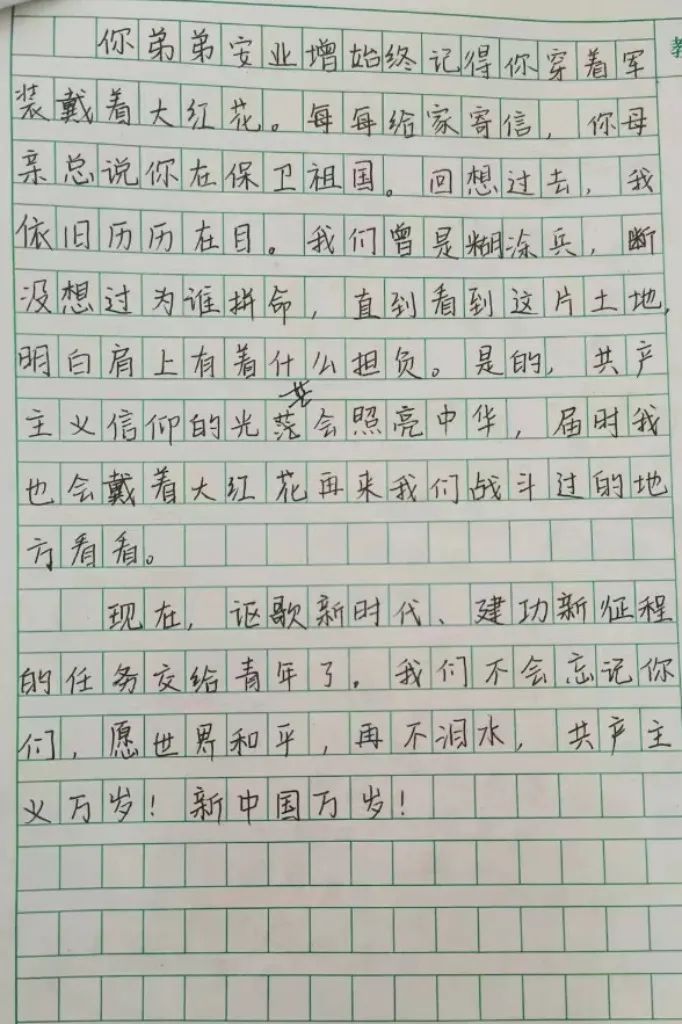 你弟弟安业增始终记得你穿着军
装戴着大红花。每每给家寄信，你母
亲总说你在保卫祖国。回想过去，我
依旧历历在目。我们曾是糊涂兵，断
没想过为谁拼命，直到看到这片土地，
明白肩上有着什么担负。是的，共产
主义信仰的光芒会照亮中华，届时我
也会戴着大红花再来我们战斗过的地
方看看。
现在，讴歌新时代、建功新征程
的任务交给青年了。我们不会忘记你
们，愿世界和平，再不泪水，共产主
义万岁！新中国万岁！